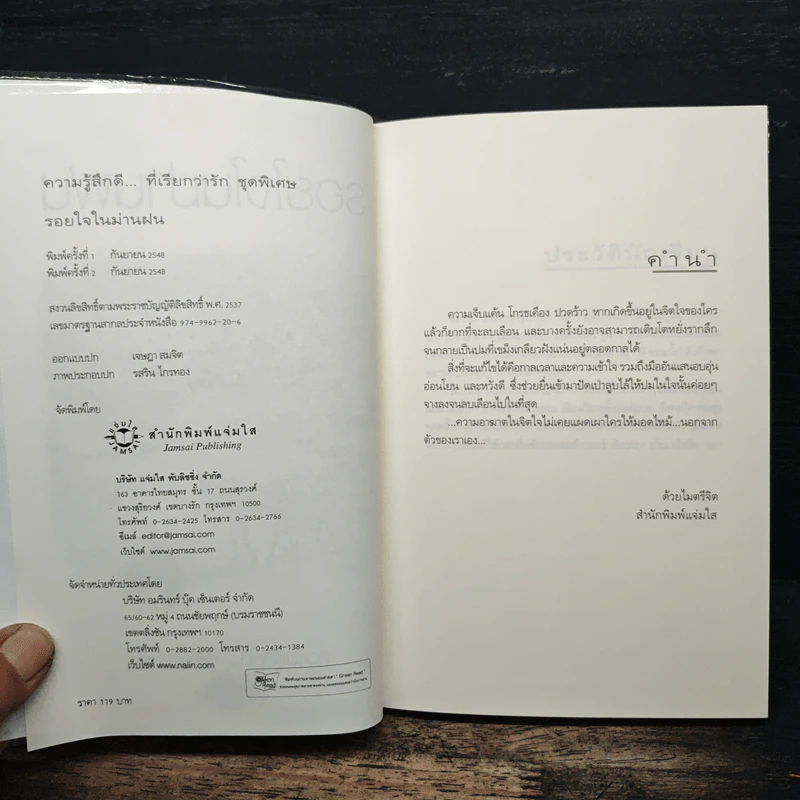 ความรู้สึกดี... ที่เรียกว่ารัก ชุดพิเศษ
รอยใจในม่านฝน
พิมพ์ครั้งที่ 1 กันยายน 2548
พิมพ์ครั้งที่ 2 กันยายน 2548
สงวนลิขสิทธิ์ตามพระราชบัญญัติลิขสิทธิ์ พ.ศ. 2537
เลขมาตรฐานสากลประจำหนังสือ 974-9962-20-6
ออกแบบปก เจษฎา สมจิต
ภาพประกอบปก รสริน ไกรทอง
จัดพิมพ์โดย
สำนักพิมพ์แจ่มใส
Jamsai Publishing
บริษัท แจ่มใส พับลิชชิ่ง จำกัด
163 อาคารไทยสมุทร ชั้น 17 ถนนสุรวงศ์
แขวงสุริยวงศ์ เขตบางรัก กรุงเทพฯ 10500
โทรศัพท์ 0-2634-2425 โทรสาร 0-2634-2766
อีเมล์ editor@jamsai.com
เว็บไซต์ www.jamsai.com
จัดจำหน่ายทั่วประเทศโดย
บริษัท อมรินทร์ บุ๊ค เซ็นเตอร์ จำกัด
65/60-62 หมู่ 4 ถนนชัยพฤกษ์ (บรมราชชนนี)
เขตตลิ่งชัน กรุงเทพฯ 10170
โทรศัพท์ 0-2882-2000 โทรสาร 0-2434-1384
เว็บไซต์ www.naiin.com
ราคา 119 บาท
คำนำ
ความเจ็บแค้น โกรธเคือง ปวดร้าว หากเกิดขึ้นอยู่ในจิตใจของใคร
แล้วก็ยากที่จะลบเลือน และบางครั้งยังอาจสามารถเติบโตหยั่งรากลึก
จนกลายเป็นปมที่เขม็งเกลียวฝังแน่นอยู่ตลอดกาลได้
สิ่งที่จะแก้ไขได้คือกาลเวลาและความเข้าใจ รวมถึงมืออันแสนอบอุ่น
อ่อนโยน และหวังดี ซึ่งช่วยยื่นเข้ามาปัดเป่าลูบไล้ให้ปมในใจนั้นค่อยๆ
จางลงจนลบเลือนไปในที่สุด
...ความอาฆาตในจิตใจไม่เคยแผดเผาใครให้มอดไหม้...นอกจาก
ตัวของเราเอง...
ด้วยไมตรีจิต
สำนักพิมพ์แจ่มใส